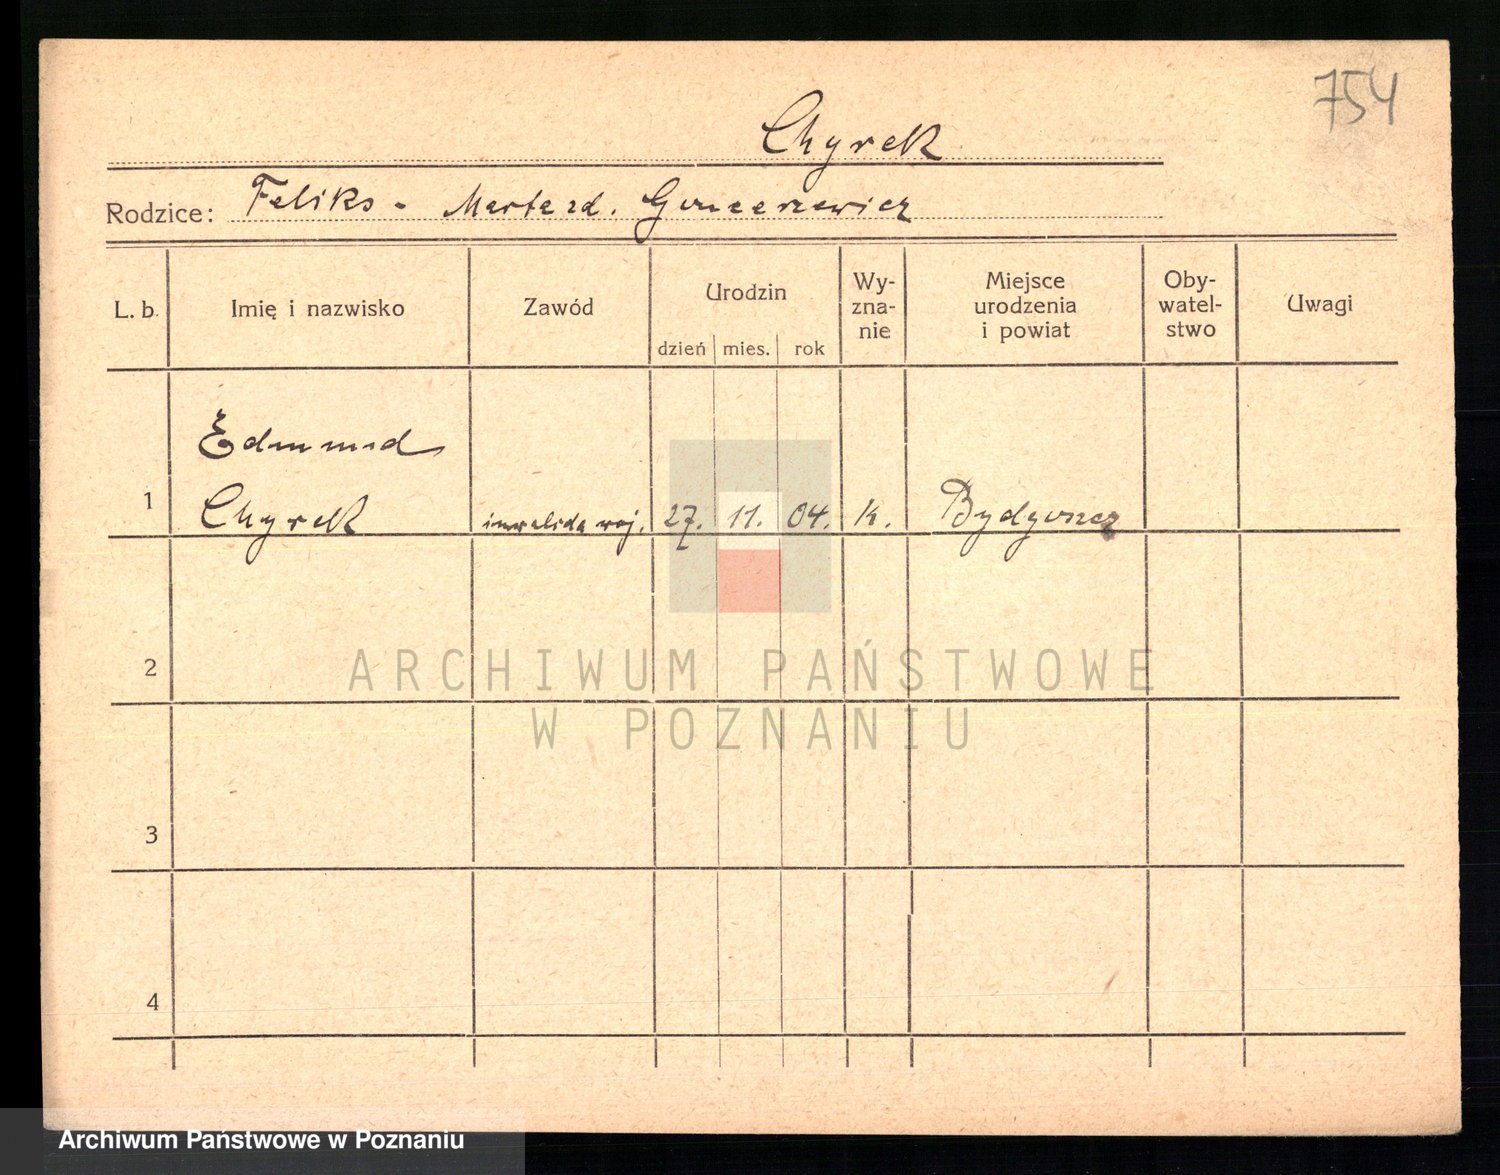 754
Chyrek
Rodzice: Feliks - Marta zd.
L. b. Imię i nazwisko Zawód Urodzin Wy-zna-nie Miejsce urodzenia i powiat Oby-watel-stwo Uwagi
dzień mies. rok
Edmund
1 Chyrek inwalida woj. 27. 11. 04. k. Bydgoszcz
2
3
4
ARCHIWUM PAŃSTWOWE
W POZNANIU
Archiwum Państwowe w Poznaniu